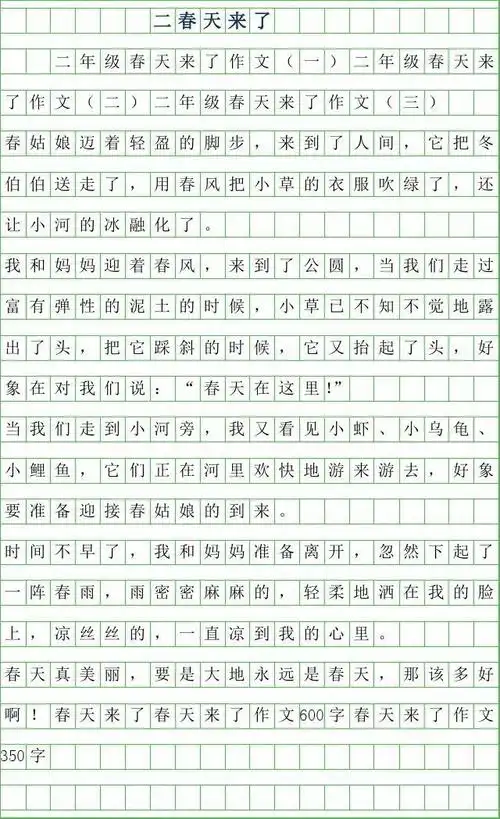 二春天来了
二年级春天来了作文(一)二年级春天来
了作文(二)二年级春天来了作文(三)
春姑娘迈着轻盈的脚步,来到了人间,它把冬
伯伯送走了,用春风把小草的衣服吹绿了,还
让小河的冰融化了。
我和妈妈迎着春风,来到了公圆,当我们走过
富有弹性的泥土的时候,小草已不知不觉地露
出了头,把它踩斜的时候,它又抬起了头,好
象在对我们说:“春天在这里!”
当我们走到小河旁,我又看见小虾、小乌龟、
小鲤鱼,它们正在河里欢快地游来游去,好象
要准备迎接春姑娘的到来。
时间不早了,我和妈妈准备离开,忽然下起了
一阵春雨,雨密密麻麻的,轻柔地洒在我的脸
上,凉丝丝的,一直凉到我的心里。
春天真美丽,要是大地永远是春天,那该多好
啊!春天来了春天来了作文600字春天来了作文
350字